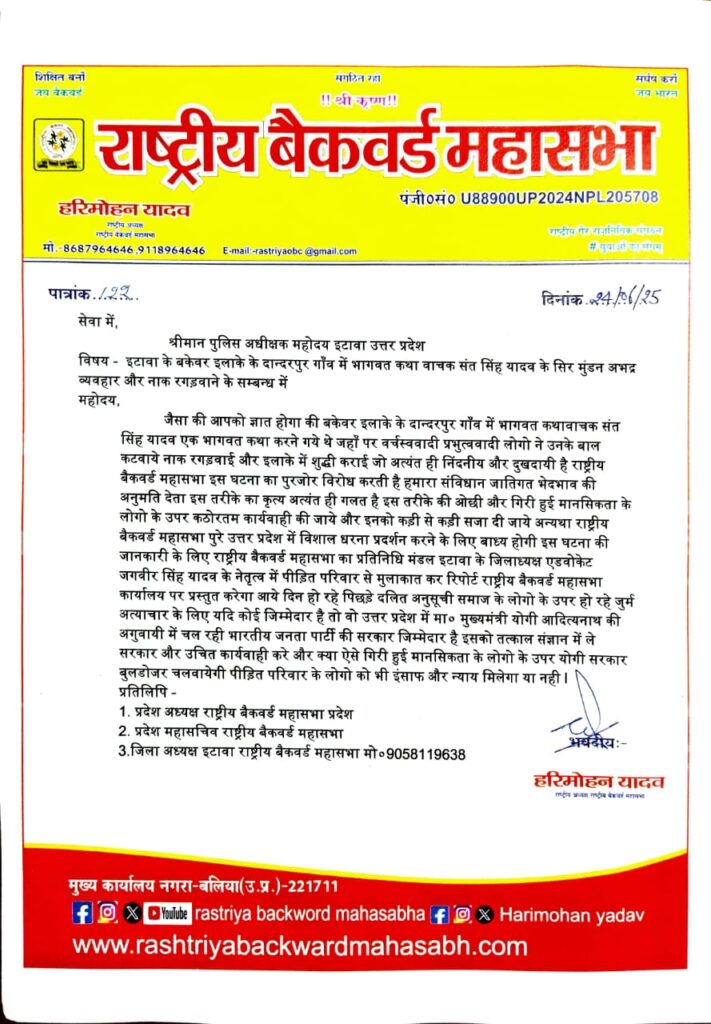 शिक्षित बनो
संगठित रहो
संघर्ष करो
जय बैकवर्ड
जय भारत
!! श्री कृष्ण!!
राष्ट्रीय बैकवर्ड महासभा
पंजी०सं० U88900UP2024NPL205708
हरिमोहन यादव
राष्ट्रीय अध्यक्ष
राष्ट्रीय बैकवर्ड महासभा
मो.-8687964646,9118964646 E-mail:-rastriyaobc @gmail.com
राष्ट्रीय गैर राजनितिक संगठन
# युवाओं का संगम्
पात्रांक 122
दिनांक 24/06/25
सेवा में,
श्रीमान पुलिस अधीक्षक महोदय इटावा उत्तर प्रदेश
विषय - इटावा के बकेवर इलाके के दान्दरपुर गाँव में भागवत कथा वाचक संत सिंह यादव के सिर मुंडन अभद्र
व्यवहार और नाक रगड़वाने के सम्बन्ध में
महोदय,
जैसा की आपको ज्ञात होगा की बकेवर इलाके के दान्दरपुर गाँव में भागवत कथावाचक संत
सिंह यादव एक भागवत कथा करने गये थे जहाँ पर वर्चस्ववादी प्रभुत्ववादी लोगो ने उनके बाल
कटवाये नाक रगड़वाई और इलाके में शुद्धी कराई जो अत्यंत ही निंदनीय और दुखदायी है राष्ट्रीय
बैकवर्ड महासभा इस घटना का पुरजोर विरोध करती है हमारा संविधान जातिगत भेदभाव की
अनुमति देता इस तरीके का कृत्य अत्यंत ही गलत है इस तरीके की ओछी और गिरी हुई मानसिकता के
लोगो के उपर कठोरतम कार्यवाही की जाये और इनको कड़ी से कड़ी सजा दी जाये अन्यथा राष्ट्रीय
बैकवर्ड महासभा पुरे उत्तर प्रदेश में विशाल धरना प्रदर्शन करने के लिए बाध्य होगी इस घटना की
जानकारी के लिए राष्ट्रीय बैकवर्ड महासभा का प्रतिनिधि मंडल इटावा के जिलाध्यक्ष एडवोकेट
जगवीर सिंह यादव के नेतृत्व में पीड़ित परिवार से मुलाकात कर रिपोर्ट राष्ट्रीय बैकवर्ड महासभा
कार्यालय पर प्रस्तुत करेगा आये दिन हो रहे पिछड़े दलित अनुसूची समाज के लोगो के उपर हो रहे जुर्म
अत्याचार के लिए यदि कोई जिम्मेदार है तो वो उत्तर प्रदेश में मा० मुख्यमंत्री योगी आदित्यनाथ की
अगुवायी में चल रही भारतीय जनता पार्टी की सरकार जिम्मेदार है इसको तत्काल संज्ञान में ले
सरकार और उचित कार्यवाही करे और क्या ऐसे गिरी हुई मानसिकता के लोगो के उपर योगी सरकार
बुलडोजर चलवायेगी पीड़ित परिवार के लोगो को भी इंसाफ और न्याय मिलेगा या नही।
प्रतिलिपि -
1. प्रदेश अध्यक्ष राष्ट्रीय बैकवर्ड महासभा प्रदेश
2. प्रदेश महासचिव राष्ट्रीय बैकवर्ड महासभा
3.जिला अध्यक्ष इटावा राष्ट्रीय बैकवर्ड महासभा मो०9058119638
भवदीयः-
हरिमोहन यादव
राष्ट्रीय अध्यक्ष राष्ट्रीय बैकवर्ड महासभा
मुख्य कार्यालय नगरा-बलिया(उ.प्र.)-221711
YouTube rastriya backword mahasabha Harimohan yadav
www.rashtriyabackwardmahasabh.com